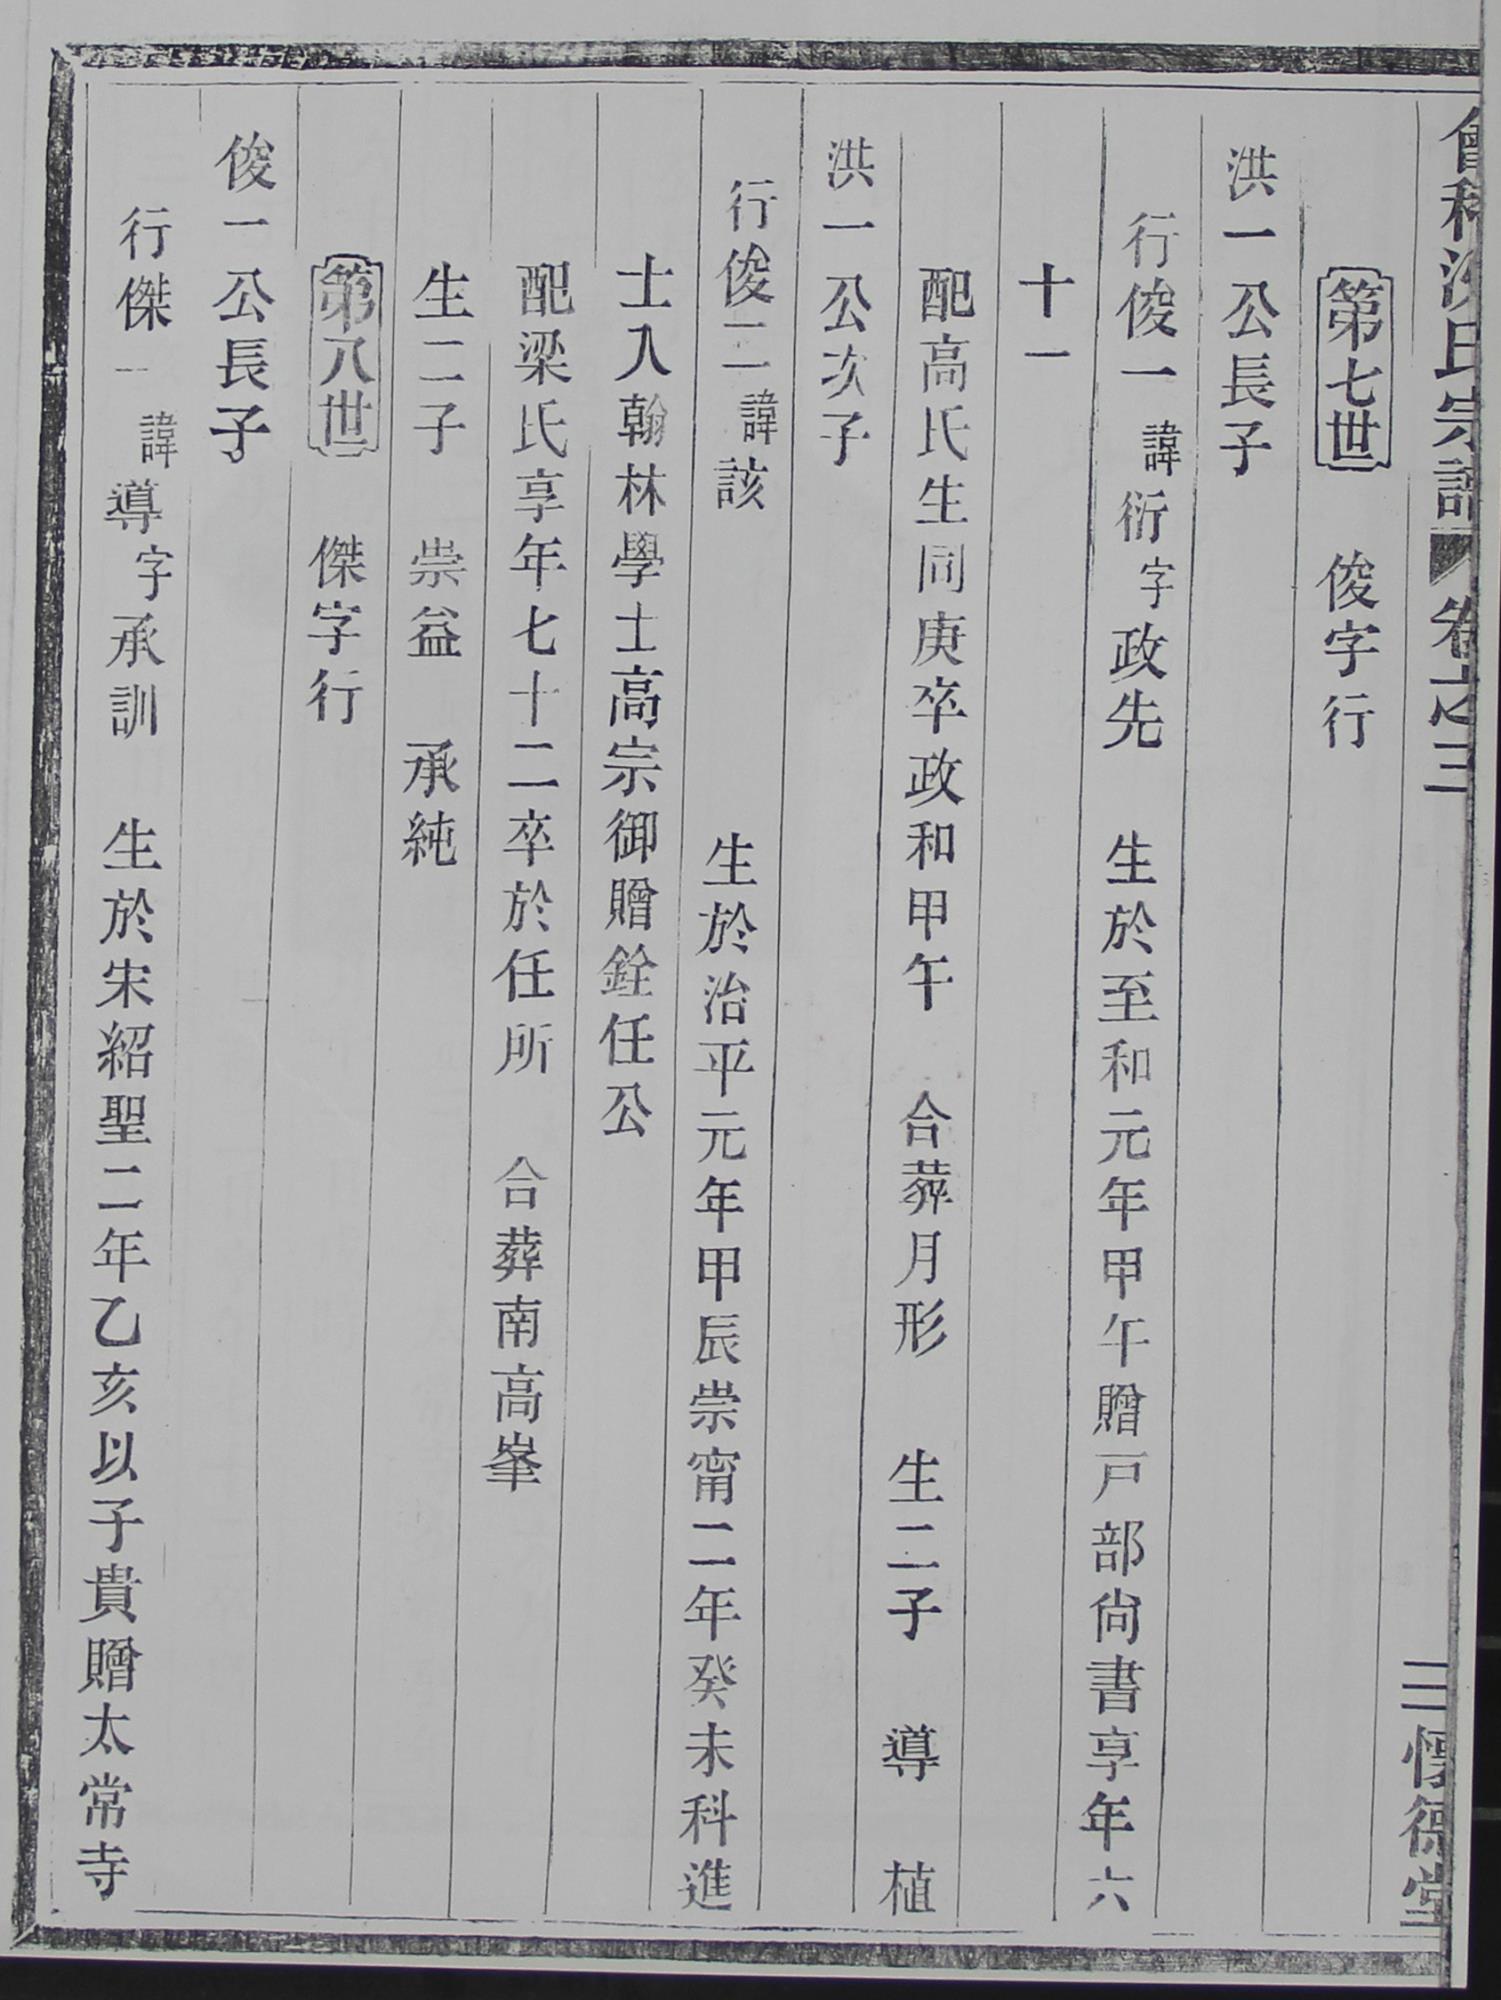 會稽沈氏宗譜 卷之三 三 懷德堂
第七世 俊字行
洪一公長子
行俊一 諱衍字政先 生於至和元年甲午贈戸部尙書享年六
十一
配高氏生同庚卒政和甲午 合葬月形 生二子 導 植
洪一公次子
行俊二 諱該 生於治平元年甲辰崇甯二年癸未科進
士入翰林學士高宗御贈銓任公
配梁氏享年七十二卒於任所 合葬南高峯
生二子 崇益 承純
第八世 傑字行
俊一公長子
行傑一 諱導字承訓 生於宋紹聖二年乙亥以子貴贈太常寺